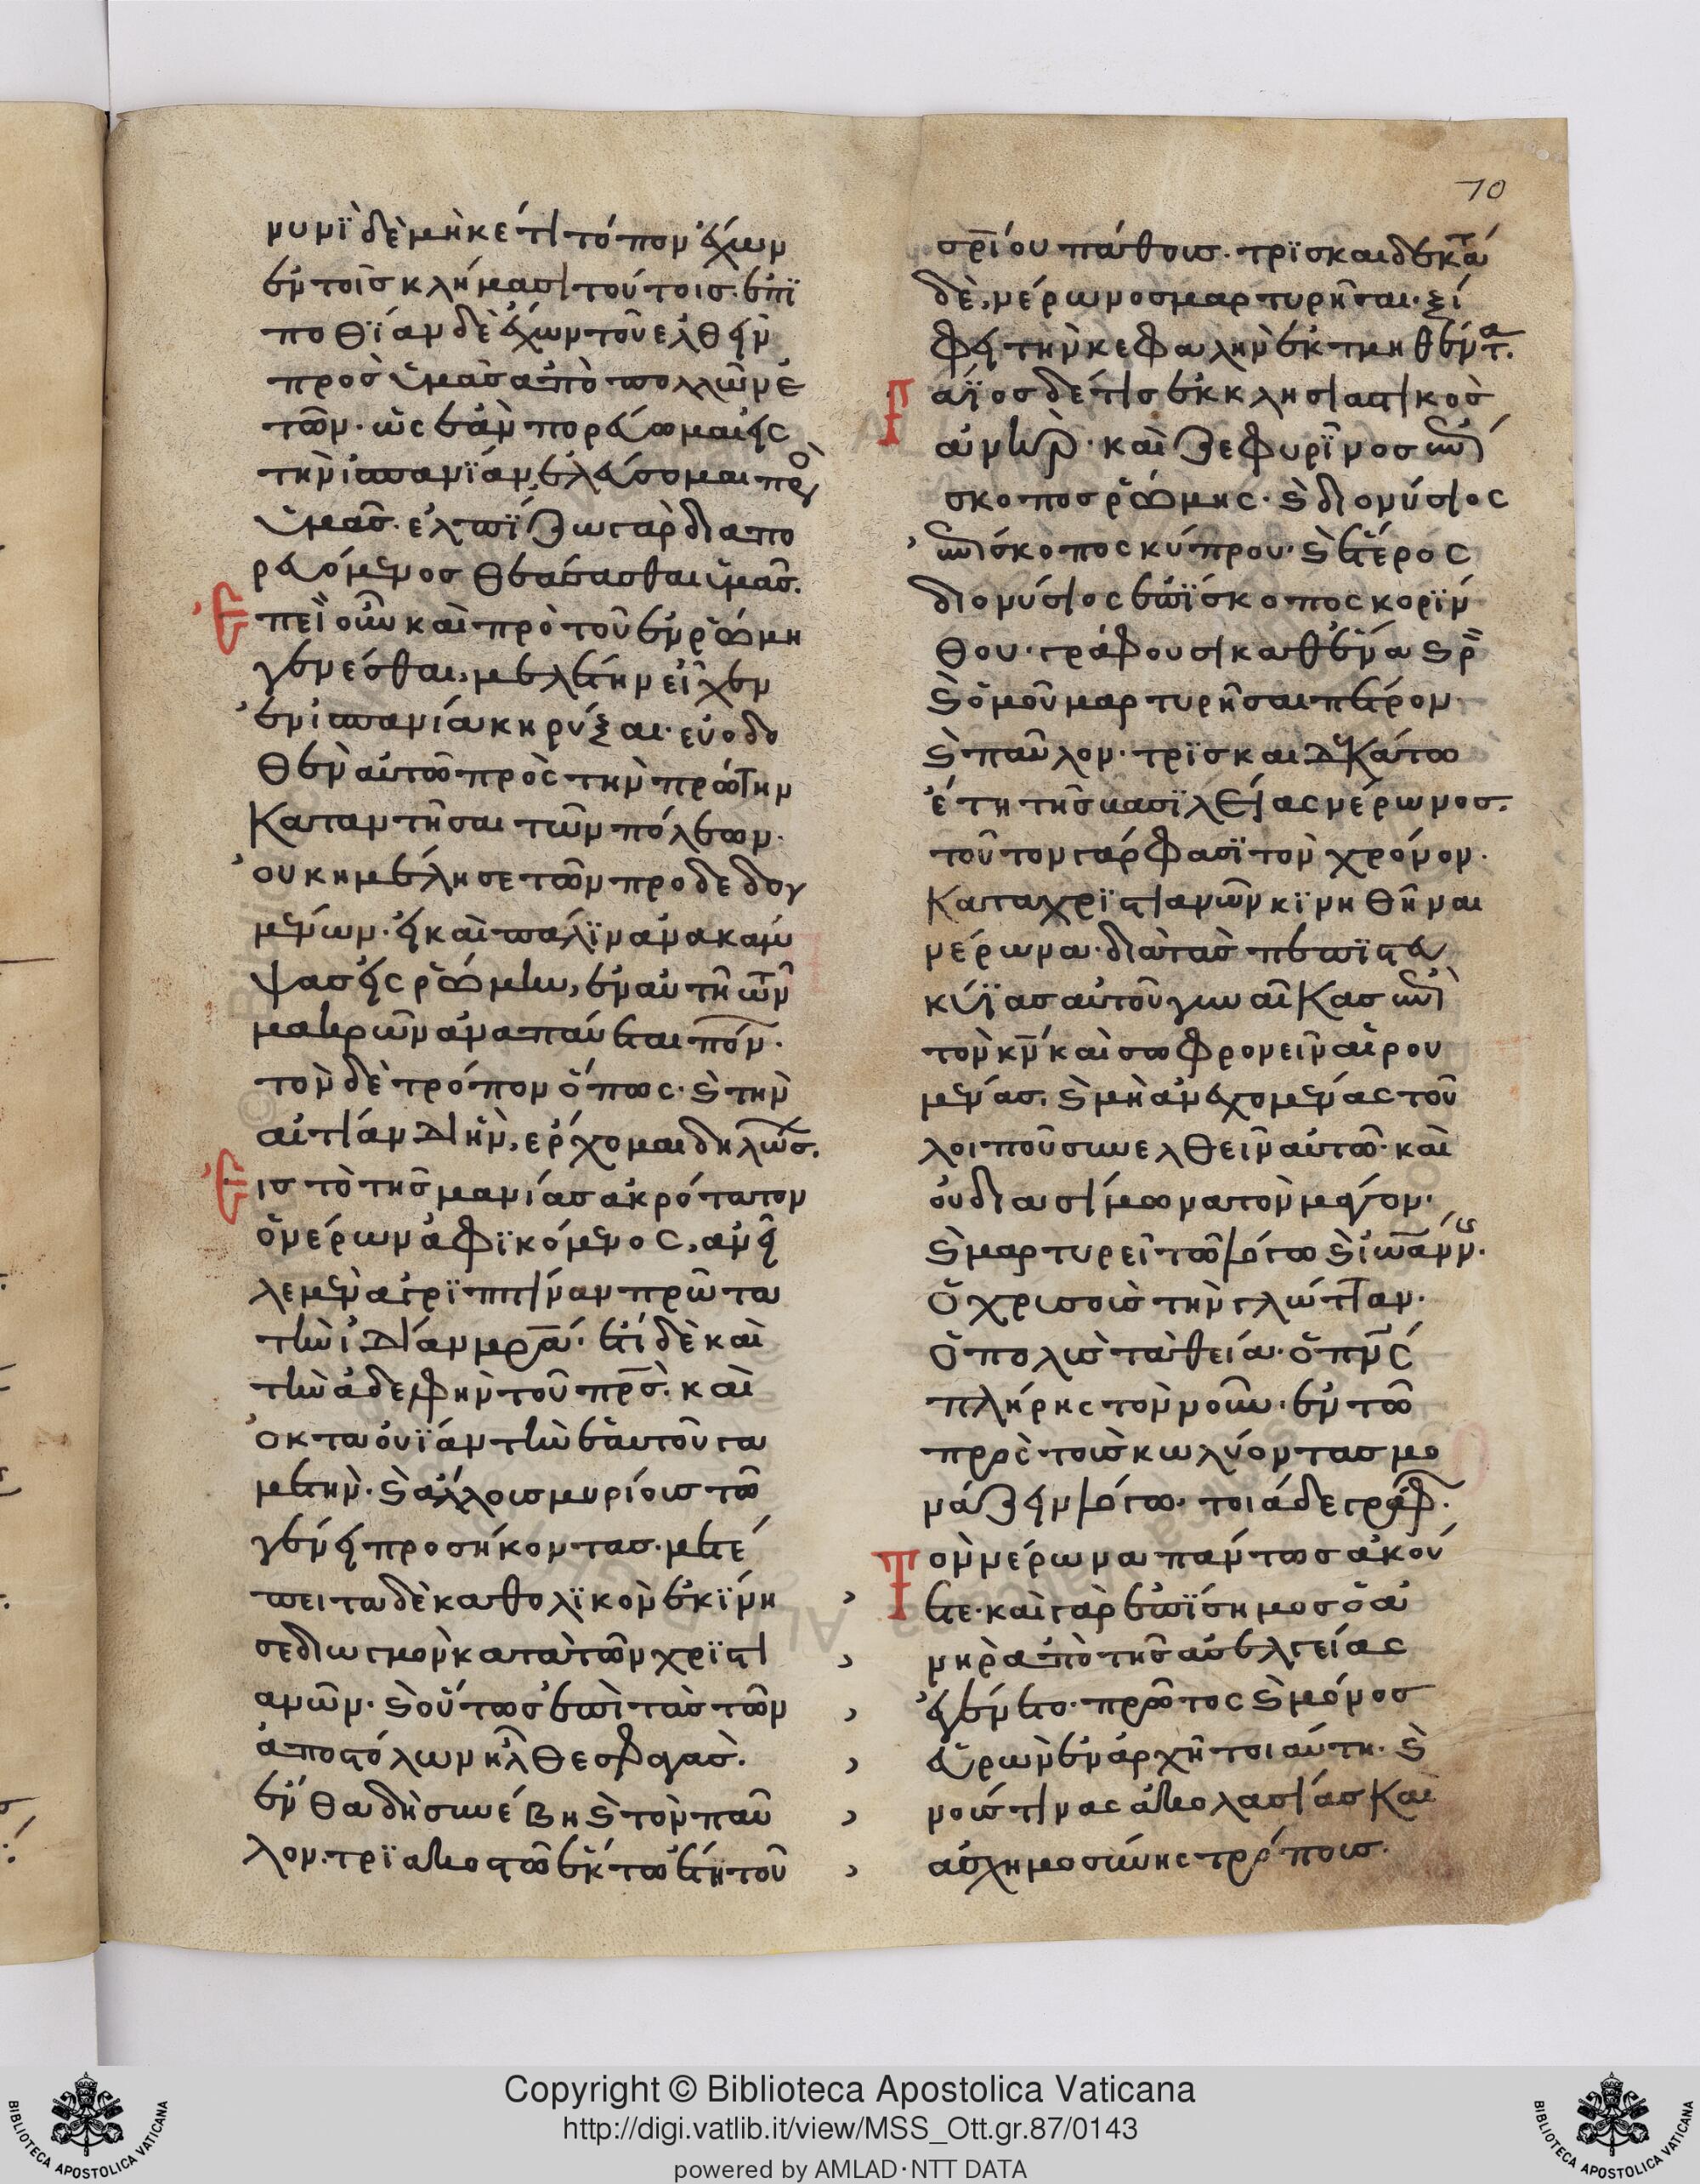 70
νυνῒ δὲ μὴκέτι τόπον ἔχων
ἐν τοῖς κλήμασι τούτοις· ἐπϊ
ποθΐαν δὲ ἔχων τοῦ ελθεῖν
πρὸς ὑμᾶς ἀπὸ πολλῶν ἐ
τῶν· ὡς ἐὰν πορεύωμαι εἰς
τὴν ἱσπανΐαν, ἐλεύσομαι πρὸ
ὑμᾶς· ἐλπΐζω γὰρ διαπο
ρευόμενος θεάσασθαι ὑμᾶς.
Ἐπεὶ οὖν καὶ πρὸ τοῦ ἐν ῥώμη
γενέσθαι, μελέτην εἶχεν
ἐν ἱσπανία κηρύξαι· εὐοδο
θὲν αὐτῶ πρὸς τὴν πρώτην
καταντῆσαι τῶν πόλεων·
οὐκ ημέλησε τῶν προδεδογ
μένων· εἰ καὶ πάλϊν ἀνακάμ
ψας εἰς ῥώμην, ἐν αὐτῆ τῶν
μακρῶν ἀναπαύεται πόν·
τὸν δὲ τρόπον ὅπως· καὶ τὴν
αἰτίαν δι ἣν, ἔρχομαι δηλώσ.
Εἰς τὸ τῆς μανίας ἀκρότατον
ὁ νέρων ἀφϊκόμενος, ἀνεῖ
λε μὲν ἀγρϊππίναν πρῶτα
τὴν ἰδίαν μρα· ἔτι δὲ καὶ
τὴν ἀδεφὴν τοῦ πρς· καὶ
ὀκταουΐαν τὴν ἑαυτοῦ γα
μετὴν· καὶ ἄλλοις μυρίοις τῶ
γένει προσήκοντας· μετέ
πειτα δὲ καθολϊκὸν ἐκΐνη
σε διωγμὸν κατὰ τῶν χρϊστι
ανῶν· καὶ οὕτως ἐπὶ τὰς τῶν
ἀποστόλων ἤλθε σφαγὰς.
ἔνθα δὴ συνέβη καὶ τὸν παῦ
λον. τρϊακοστῶ ἕκτω ἔτη τοῦ
σρίου πάθους· τρϊσκαιδεκάτ
δὲ, νέρωνος μαρτυρῆσαι· ξί
φει τὴν κεφαλὴν ἐκτμηθέντα.
Γάϊος δέ τις ἐκκλησιαστικὸς
ἀνὴρ· καὶ ζεφυρῖνος ἐπί
σκοπος ῥώμης· καὶ διονύσιος
ἐπίσκοπος κύπρου· καὶ ἕτερος
διονύσιος ἐπΐσκοπος κορΐν
θου· γράφουσι καθένα καιρ
καὶ ὁμοῦ μαρτυρῆσαι πέτρον
καὶ παῦλον· τρϊσκαιδεκάτω
ἔτη τῆς βασϊλείας νέρωνος.
τοῦτον γάρ φασϊ τὸν χρόνον·
κατα χρϊστιανῶν κϊνηθῆναι
νέρωνα· διὰ τὰς πεπϊστευ
κύϊας αὐτοῦ γυναῖκας ἐπὶ
τὸν κν καὶ σωφρονεῖν αἱρου
μένας. καὶ μὴ ἀνεχομένας τοῦ
λοιποῦ συνελθεῖν αὐτῶ· καὶ
οὐ διασίμωνα τὸν μάγον·
καὶ μαρτυρεῖ τῶ λόγω καὶ ἰωάνν·
ὁ χρυσοῦς τὴν γλώτταν·
ὁ πολὺς τὰ θεία· ὁ πνς
πλήρης τὸν νοῦν· ἐν τῶ
πρὸς τοὺς κωλύοντας μο
νάζειν λόγω· τοιάδε γράφ·
Τὸν νέρωνα πάντως ἀκού
ετε· καὶ γὰρ ἐπΐσημος ὁ ἀ
νὴρ ἀπὸ τῆς ἀσελγείας
ἐγένετο· πρῶτος καὶ μόνος
εὑρὼν ἐν ἀρχῆ τοιαύτη· καὶ
νούς τινας ἀκολασίας καὶ
ἀσχημοσύνης τρόπους·
Copyright © Biblioteca Apostolica Vaticana
http://digi.vatlib.it/view/MSS_Ott.gr.87/0143
powered by AMLAD·NTT DATA
BIBLIOTECA APOSTOLICA VATICANA
BIBLIOTECA APOSTOLICA VATICANA